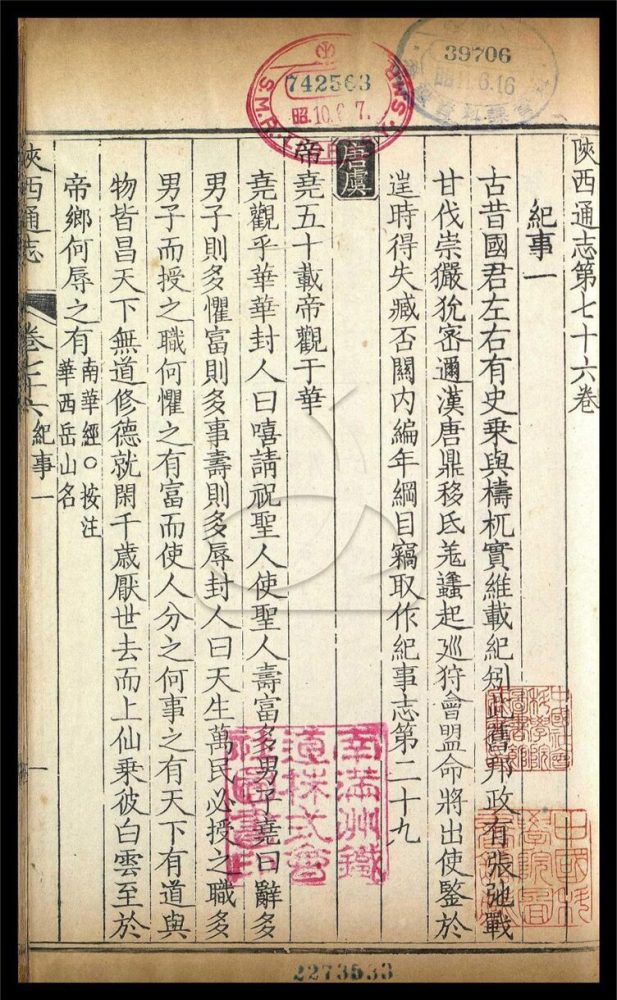 陝西通志第七十六卷
紀事一
古昔國君左右有史乘與檮杌實維載紀矧茲舊邦政有張弛戰
甘伐崇玁狁宻邇漢唐鼎移氐羗蠭起廵狩會盟命將出使鑒於
遑時得失臧否關内編年綱目竊取作紀事志第二十九
唐虞
帝堯五十載帝觀于華
堯觀乎華華封人曰嘻請祝聖人使聖人壽富多男子堯曰辭多
男子則多懼富則多事壽則多辱封人曰天生萬民必授之職多
男子而授之職何懼之有富而使人分之何事之有天下有道與
物皆昌天下無道修德就閑千歲厭世去而上仙乘彼白雲至於
帝鄉何辱之有 南華經○按注
華西岳山名
陝西通志
卷七十六 紀事一
一
742563
昭.10.6.7.
39706
昭11.6.16
南滿洲鐵
道株式會
社圖書印
2273533